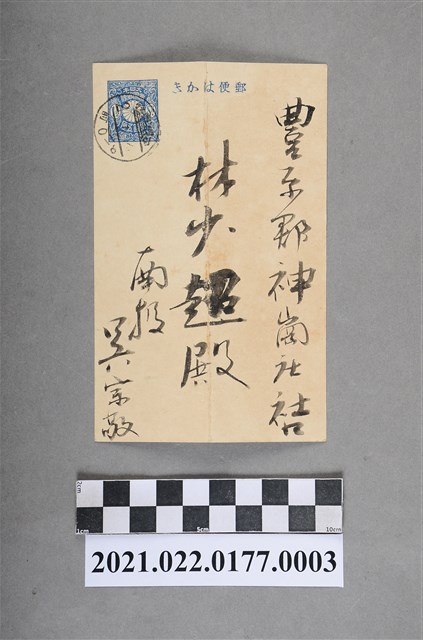 郵便はかき
豐原郡神崗庄社口
林少超殿
南投
吳宗敬
2cm
1cm
5cm
10cm
2021.022.0177.0003